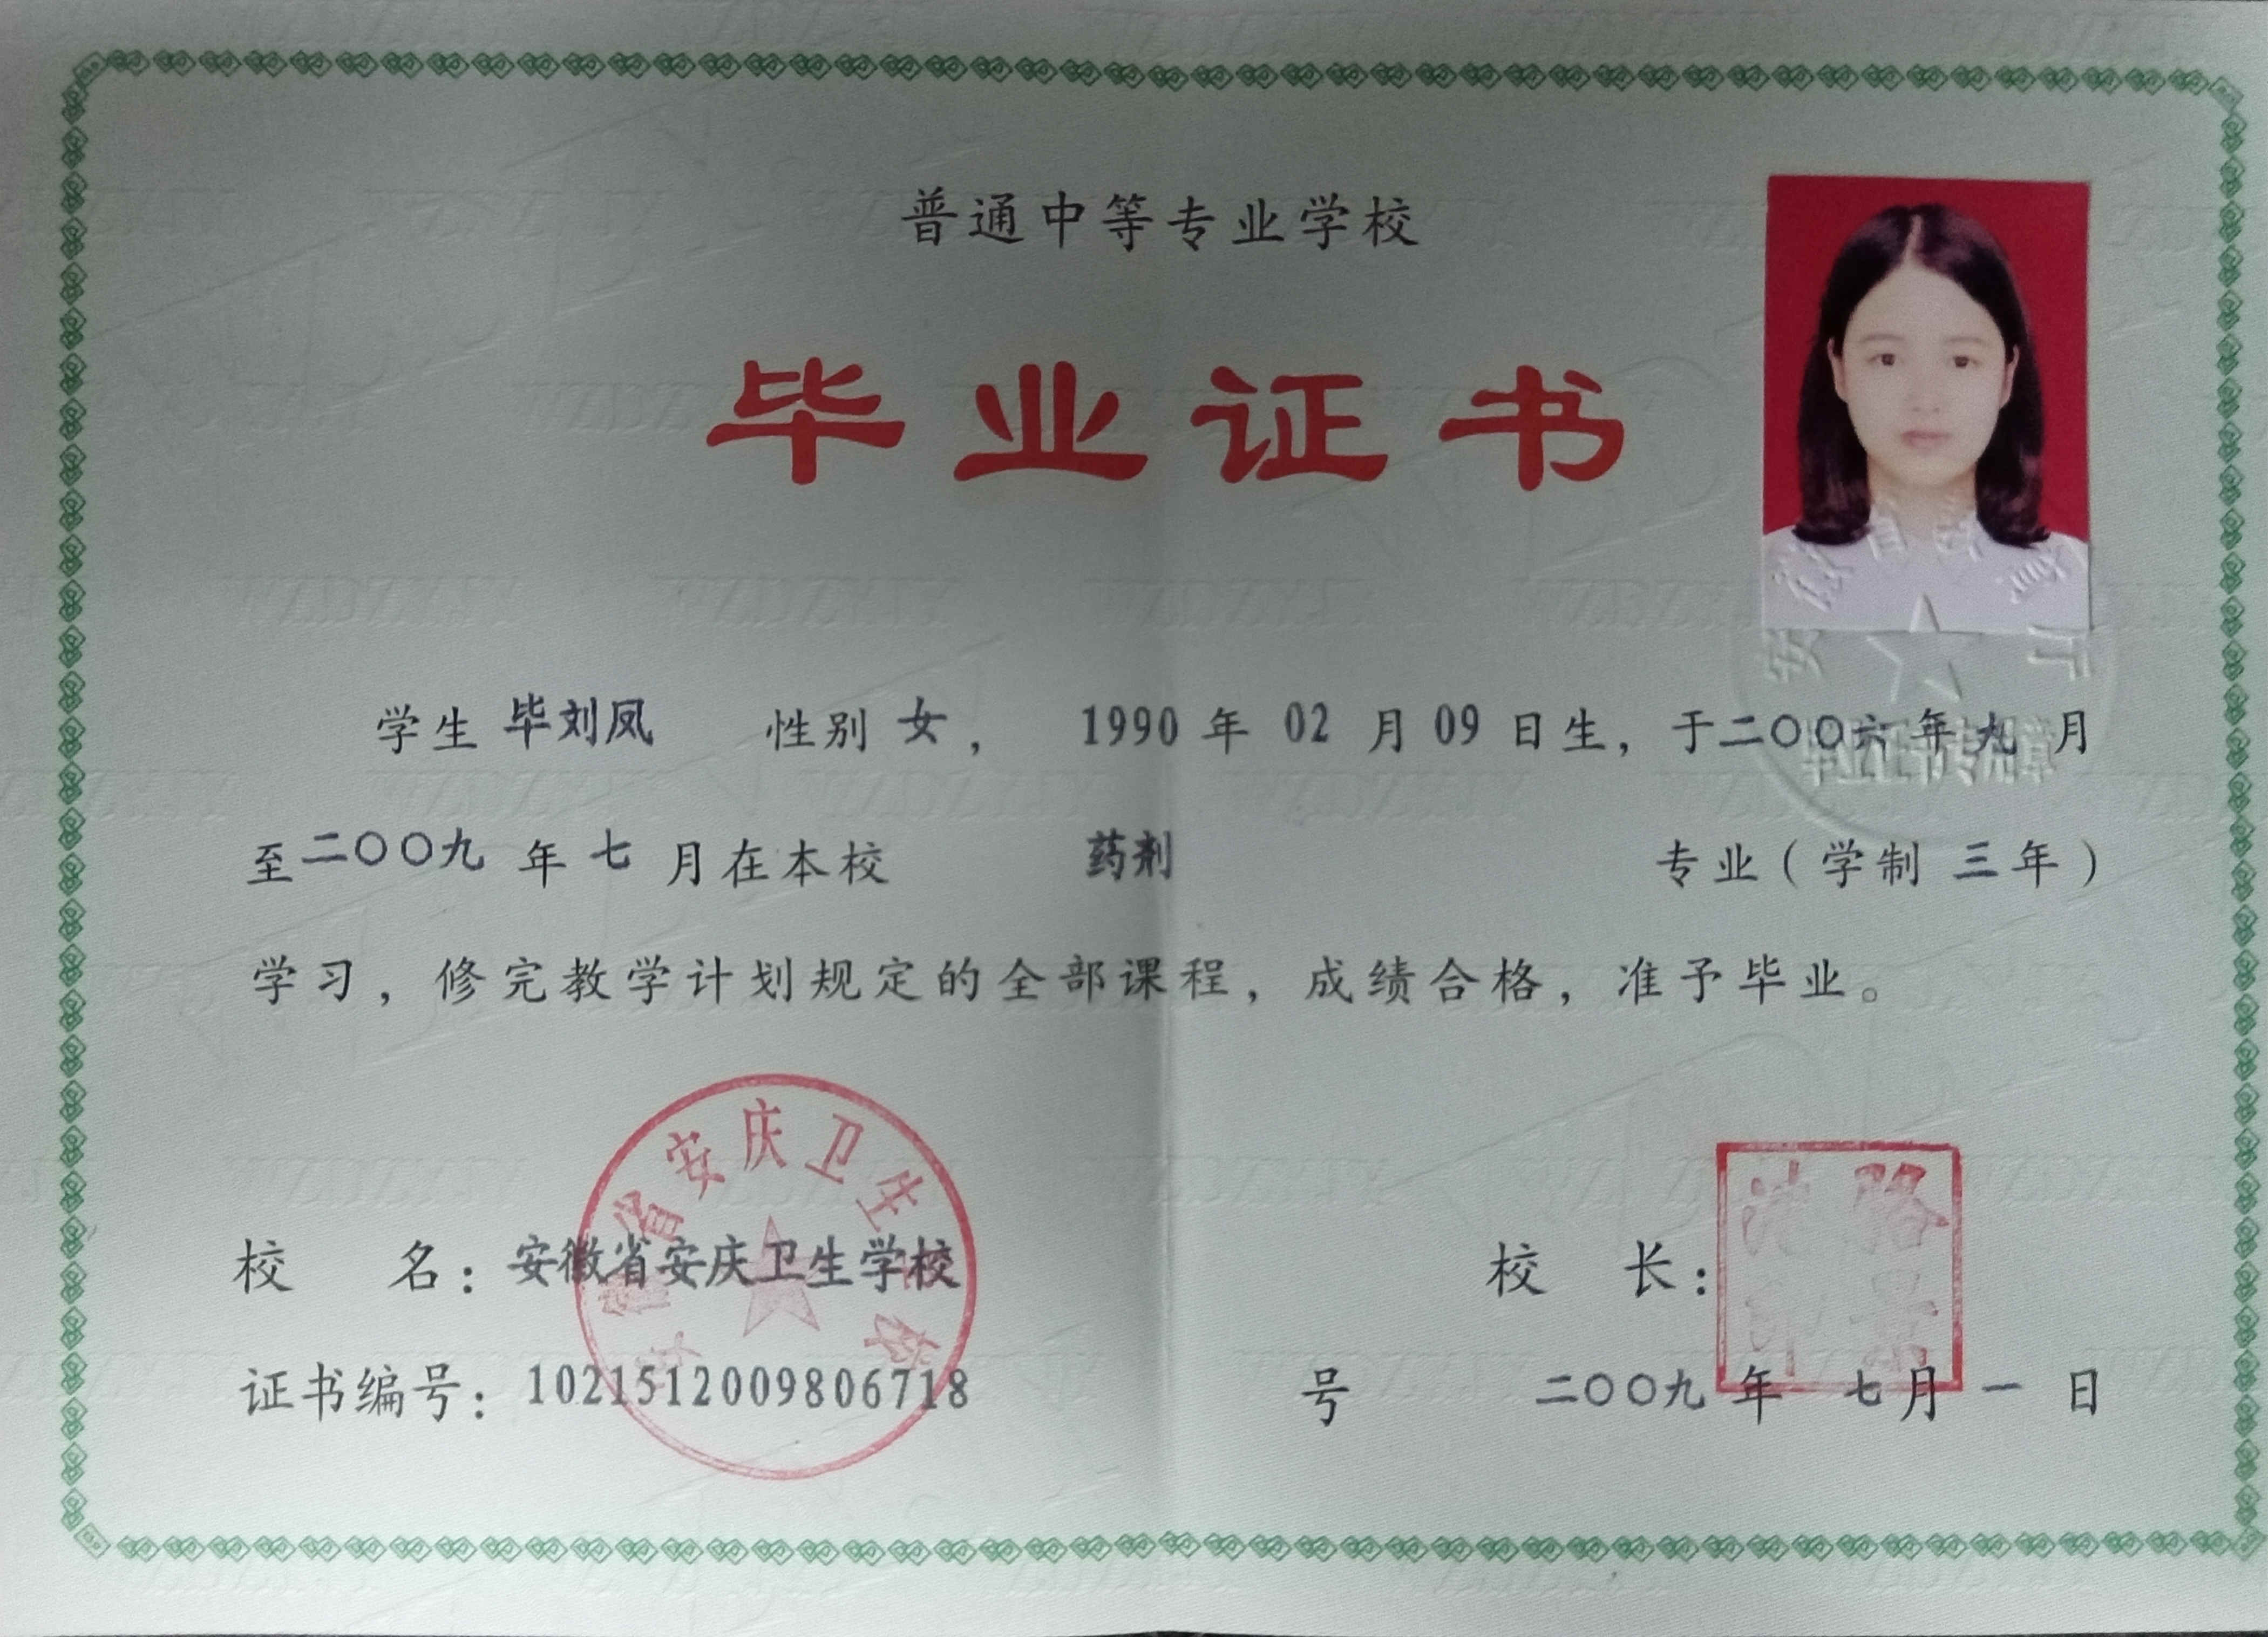 普通中等专业学校
毕业证书
学生 毕刘凤 性别 女， 1990 年 02 月 09 日生，于二〇〇六年九月
至二〇〇九年七月在本校 药剂 专业（学制 三年）
学习，修完教学计划规定的全部课程，成绩合格，准予毕业。
安徽省教育厅
毕业证书专用章
安徽省安庆卫生学校
校 名：安徽省安庆卫生学校 校 长：
证书编号：1021512009806718 号 二〇〇九年 七月 一 日